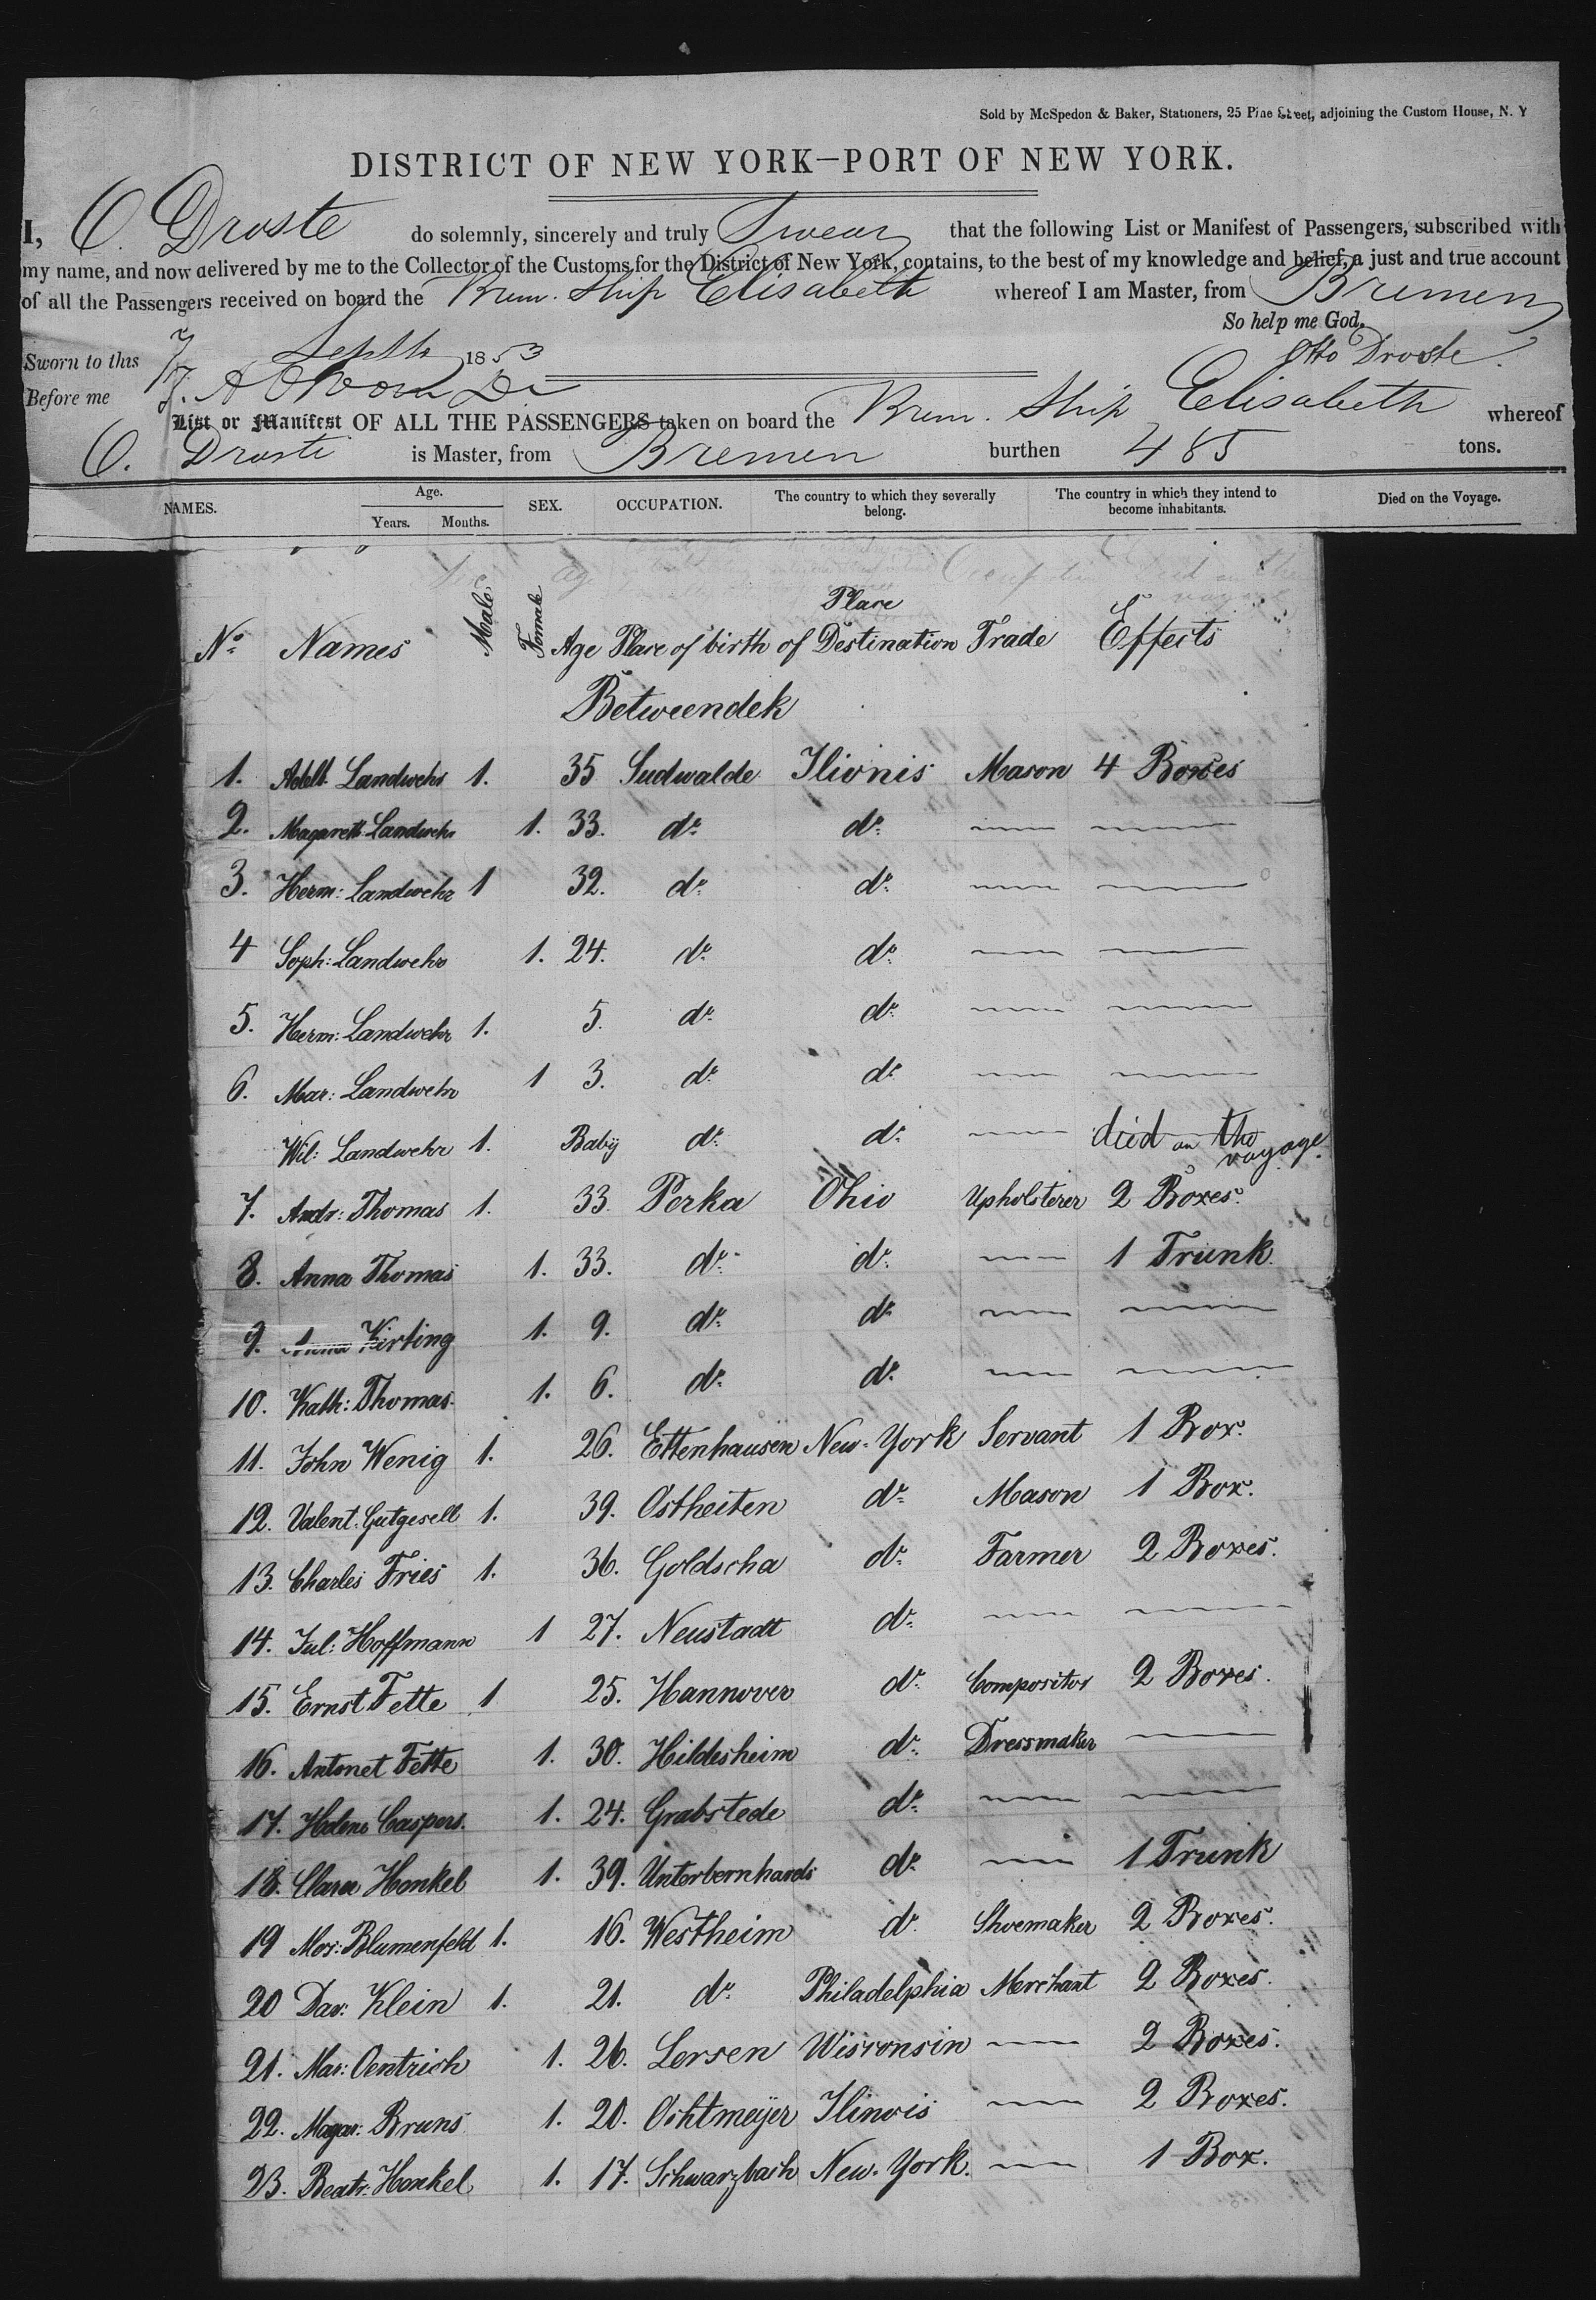 Sold by McSpedon & Baker, Stationers, 25 Pine Street, adjoining the Custom House, N. Y
DISTRICT OF NEW YORK—PORT OF NEW YORK.
I, O. Droste do solemnly, sincerely and truly Swear that the following List or Manifest of Passengers, subscribed with
my name, and now delivered by me to the Collector of the Customs for the District of New York, contains, to the best of my knowledge and belief, a just and true account
of all the Passengers received on board the Brem. Ship Elisabeth whereof I am Master, from Bremen
So help me God.
Sworn to this 7 Septh 1853 Otto Droste.
Before me
List or Manifest OF ALL THE PASSENGERS taken on board the Brem. Ship Elisabeth whereof
O. Droste is Master, from Bremen burthen 485 tons.
NAMES. Age. Years. Months. SEX. OCCUPATION. The country to which they severally belong. The country in which they intend to become inhabitants. Died on the Voyage.
No. Names Male Female Age Place of birth Place of Destination Trade Effects
Betweendek
1. Adelb. Landwehr 1. 35 Sudwalde Ilionis Mason 4 Boxes
2. Magareth Landwehr 1. 33. do. do. — —
3. Herm: Landwehr 1 32. do. do. — —
4 Soph: Landwehr 1. 24. do. do. — —
5. Herm: Landwehr 1. 5. do. do. — —
6. Mar: Landwehr 1 3. do. do. — —
Wil: Landwehr 1. Baby do. do. — died on the voyage.
7. Andr: Thomas 1. 33. Perka Ohio Upholsterer 2 Boxes.
8. Anna Thomas 1. 33. do. do. — 1 Trunk.
9. Anna Kirting 1. 9. do. do. — —
10. Kath: Thomas. 1. 6. do. do. — —
11. John Wenig 1. 26. Ettenhausen New-York Servant 1 Box.
12. Valent. Gutgesell 1. 39. Ostheiten do. Mason 1 Box.
13. Charles Fries 1. 36. Goldscha do. Farmer 2 Boxes.
14. Jul: Hoffmann 1 27. Neustadt do. — —
15. Ernst Fette 1 25. Hannover do. Compositor 2 Boxes.
16. Antonet Fette 1. 30. Hildesheim do. Dressmaker —
17. Helene Caspers. 1. 24. Grabstede do. — —
18. Clara Henkel 1. 39. Unterbernhards do. — 1 Trunk
19 Mos: Blumenfeld 1. 16. Westheim do. Shoemaker 2 Boxes.
20 Dav: Klein 1. 21. do. Philadelphia Merchant 2 Boxes.
21. Mar: Oentrich 1. 26. Lersen Wisconsin — 2 Boxes.
22. Magar: Bruns 1. 20. Ochtmeijer Ilinois — 2 Boxes.
23. Beatr: Henkel 1. 17. Schwarzbach New-York. — 1 Box.